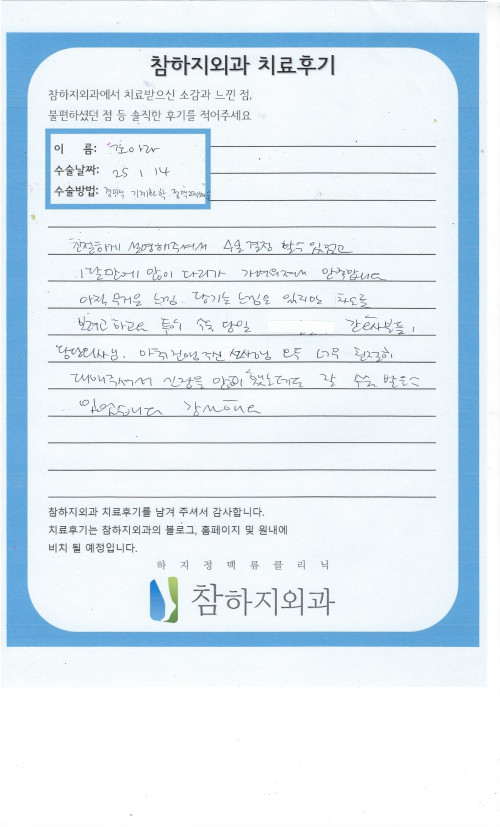 참하지외과 치료후기
참하지외과에서 치료받으신 소감과 느낀 점,
불편하셨던 점 등 솔직한 후기를 적어주세요
이 름:
수술날짜: 25 1 14
수술방법:
친절하게 설명해주셔서 수술 결정 할 수 있었고
1달만에 많이 다리가 가벼워져서 만족합니다
아직 무거운 느낌. 당기는 느낌은 있지만 차도를
보려고 하고요 특히 수술 당일 간호사분들,
담당의사님. 마취 선생님 모두 너무 친절히
대해주셔서 긴장을 많이 했는데도 잘 수술 받을 수
있었습니다 감사해요
참하지외과 치료후기를 남겨 주셔서 감사합니다.
치료후기는 참하지외과의 블로그, 홈페이지 및 원내에
비치 될 예정입니다.
하지정맥류클리닉
참하지외과